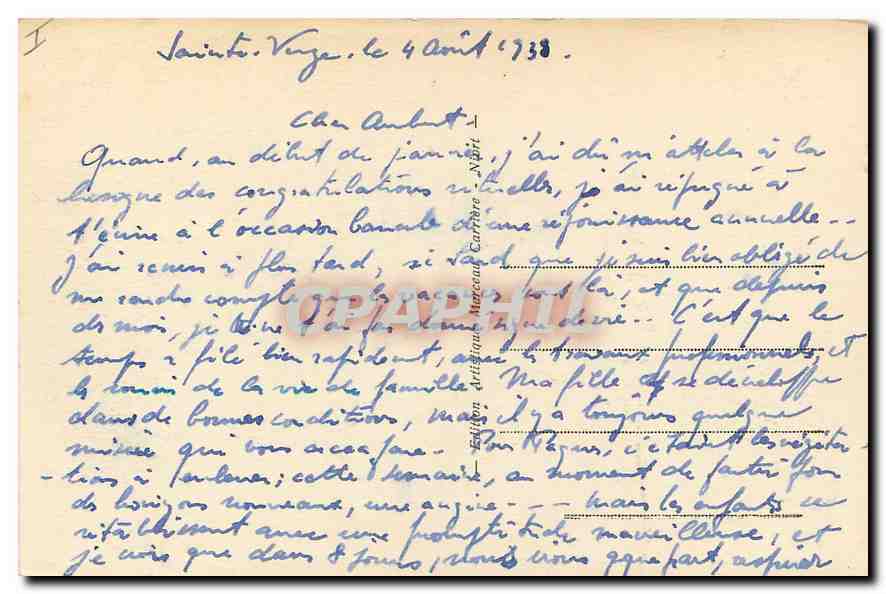 I
Sainte-Verge, le 4 Août 1938.
Cher Aubert.
Quand, au début de janvier, j'ai dû m'atteler à la
besogne des congratulations rituelles, j'ai répugné à
t'écrire à l'occasion banale d'une réjouissance annuelle..
J'ai remis à plus tard, si tard que je suis bien obligé de
me rendre compte que les vacances sont là, et que depuis
des mois, je ne t'ai pas donné signe de vie.. C'est que le
temps a filé bien rapidement, avec les travaux professionnels, et
les soucis de la vie de famille. Ma fille se développe
dans de bonnes conditions, mais il y a toujours quelque
misère qui vous accapare. Pour Pâques, c'étaient les végéta-
-tions à enlever; cette semaine, au moment de partir pour
des horizons nouveaux, une angine - - - mais les enfants se
rétablissent avec une promptitude merveilleuse, et
je crois que dans 8 jours, nous irons q que part, aspirer
Edition Artistique Marceau Carrière Niort
CPAPHIL